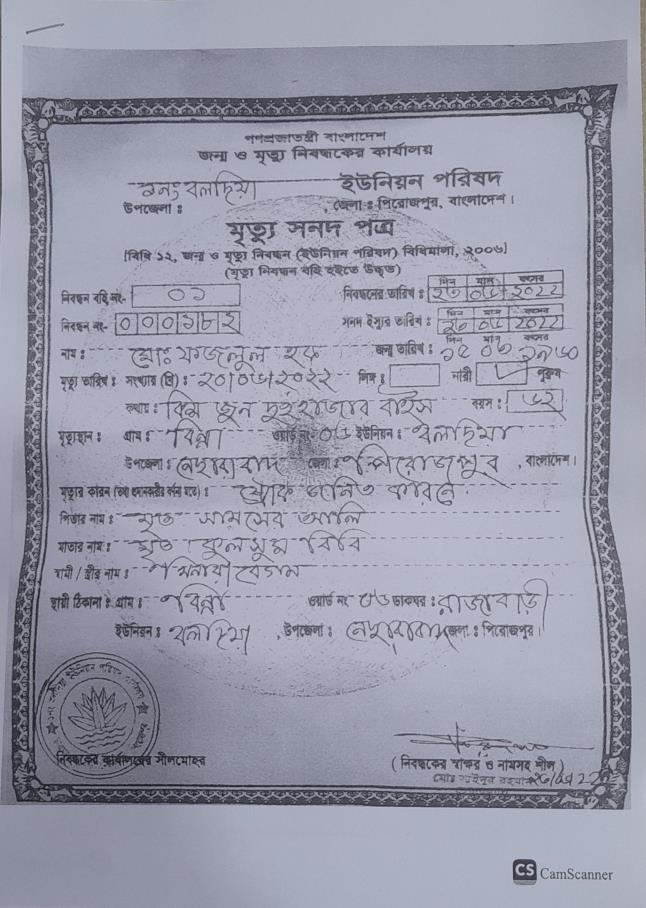 গণপ্রজাতন্ত্রী বাংলাদেশ
জন্ম ও মৃত্যু নিবন্ধকের কার্যালয়
বলদিয়া ইউনিয়ন পরিষদ
উপজেলা : , জেলা : পিরোজপুর, বাংলাদেশ।
মৃত্যু সনদ পত্র
[বিধি ১২, জন্ম ও মৃত্যু নিবন্ধন (ইউনিয়ন পরিষদ) বিধিমালা, ২০০৬]
(মৃত্যু নিবন্ধন বহি হইতে উদ্ধৃত)
দিন মাস বৎসর
নিবন্ধন বহি নং- ০১ নিবন্ধনের তারিখ : ২০২২
দিন মাস বৎসর
নিবন্ধন নং- ০০০১৮২ সনদ ইস্যুর তারিখ : ২০২২
দিন মাস বৎসর
নাম : মোঃ ফজলুল হক জন্ম তারিখ : ১৯৬০
মৃত্যু তারিখ : সংখ্যায় (খ্রি) : ২০/০৬/২০২২ লিঙ্গ : নারী পুরুষ
কথায় : বিশ জুন দুইহাজার বাইস বয়স : ৬২
মৃত্যুস্থান : গ্রাম : বিন্না ওয়ার্ড নং ০৬ ইউনিয়ন : বলদিয়া
উপজেলা : নেছারাবাদ জেলা : পিরোজপুর , বাংলাদেশ।
মৃত্যুর কারন (তথ্য প্রদানকারীর বর্ননা মতে) : স্ট্রোক জনিত কারনে
পিতার নাম : মৃত সামসের আলি
মাতার নাম : মৃত কুলসুম বিবি
স্বামী / স্ত্রীর নাম : বেগম
স্থায়ী ঠিকানা : গ্রাম : বিন্না ওয়ার্ড নং ০৬ ডাকঘর : রাজাবাড়ী
ইউনিয়ন : বলদিয়া , উপজেলা : নেছারাবাদ জেলা : পিরোজপুর।
নিবন্ধকের কার্যালয়ের সীলমোহর
( নিবন্ধকের স্বাক্ষর ও নামসহ সীল )
মোঃ সাইদুর রহমান
CS CamScanner